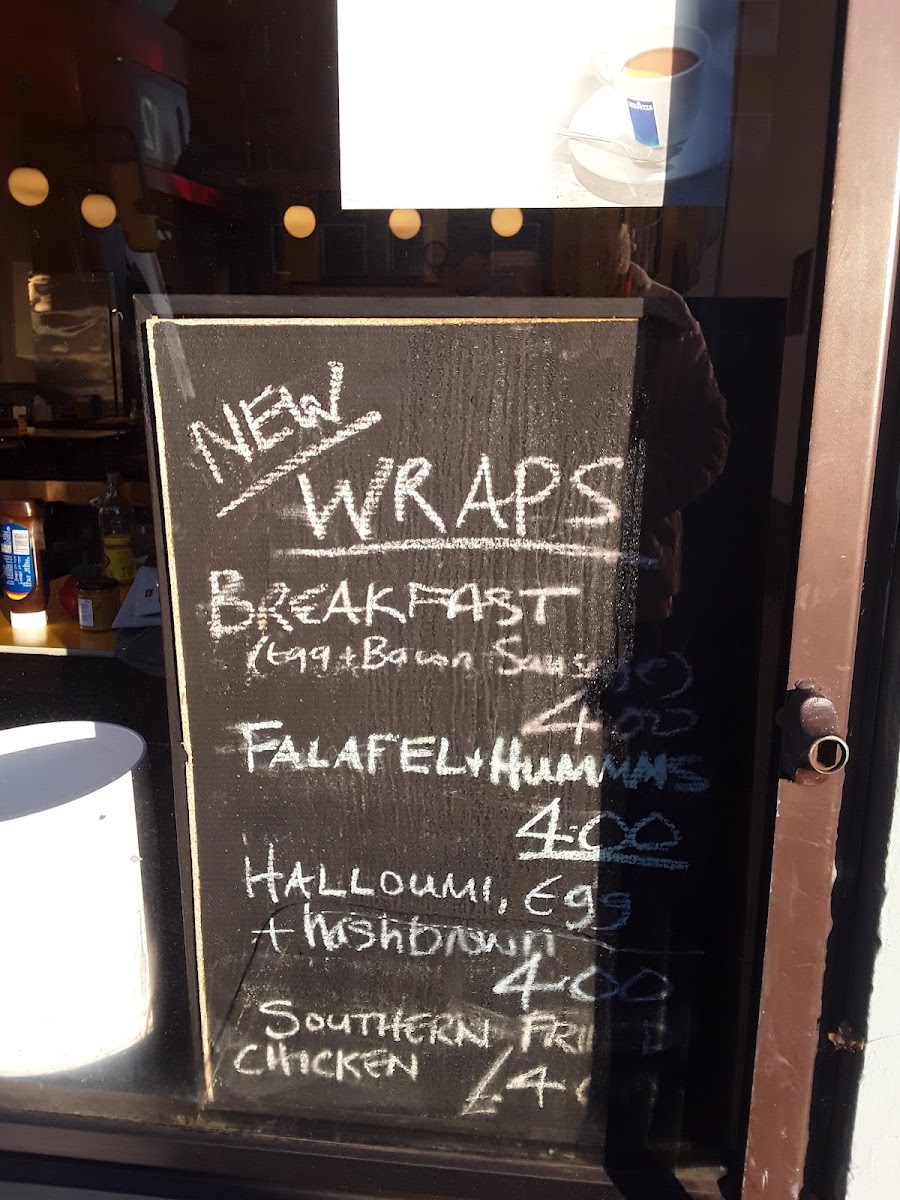 LAVAZZA
NEW
WRAPS
BREAKFAST
(Egg + Bacon Sausage)
4.00
FALAFEL + HUMMUS
4.00
HALLOUMI, Egg
+ hashbrown
4.00
SOUTHERN FRIED
CHICKEN £4